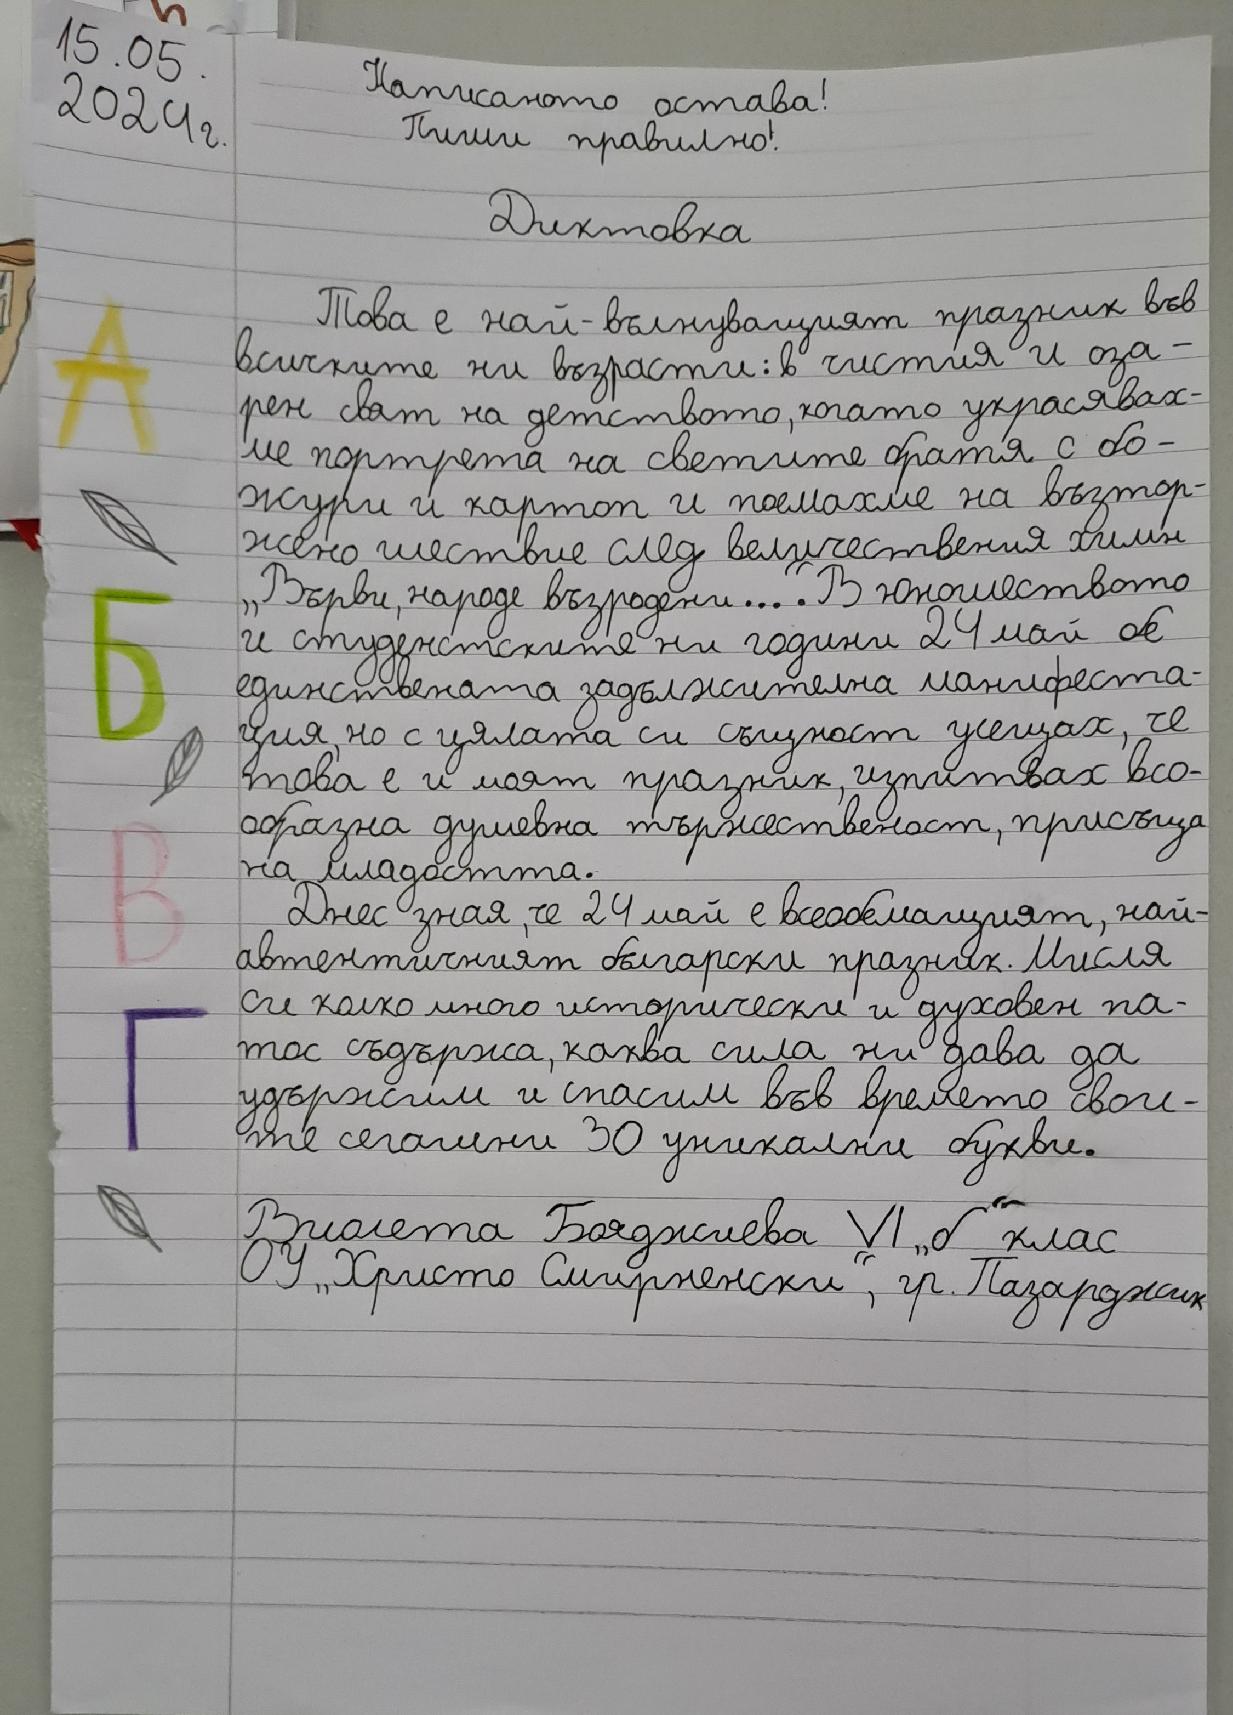 15.05.
2024г.
Написаното остава!
Пиши правилно!
Диктовка
Това е най-вълнуващият празник във
всичките ни възрасти: в чистия и оза-
рен свят на детството, когато украсявах-
ме портрета на светите братя с бо-
жури и картон и поемахме на възтор-
жено шествие след величествения химн
„Върви, народе възродени...“. В юношеството
и студенстските ни години 24 май бе
единствената задължителна манифеста-
ция, но с цялата си същност усещах, че
това е и моят празник, изпитвах всо-
образна душевна тържественост, присъща
на младостта.
Днес зная, че 24 май е всеобемащият, най-
автентичният български празник. Мисля
си колко много исторически и духовен па-
тос съдържа, каква сила ни дава да
удържим и спасим във времето свои-
те сегашни 30 уникални букви.
Виолета Бояджиева VI „б“ клас
ОУ „Христо Смирненски“, гр. Пазарджик
А
Б
В
Г